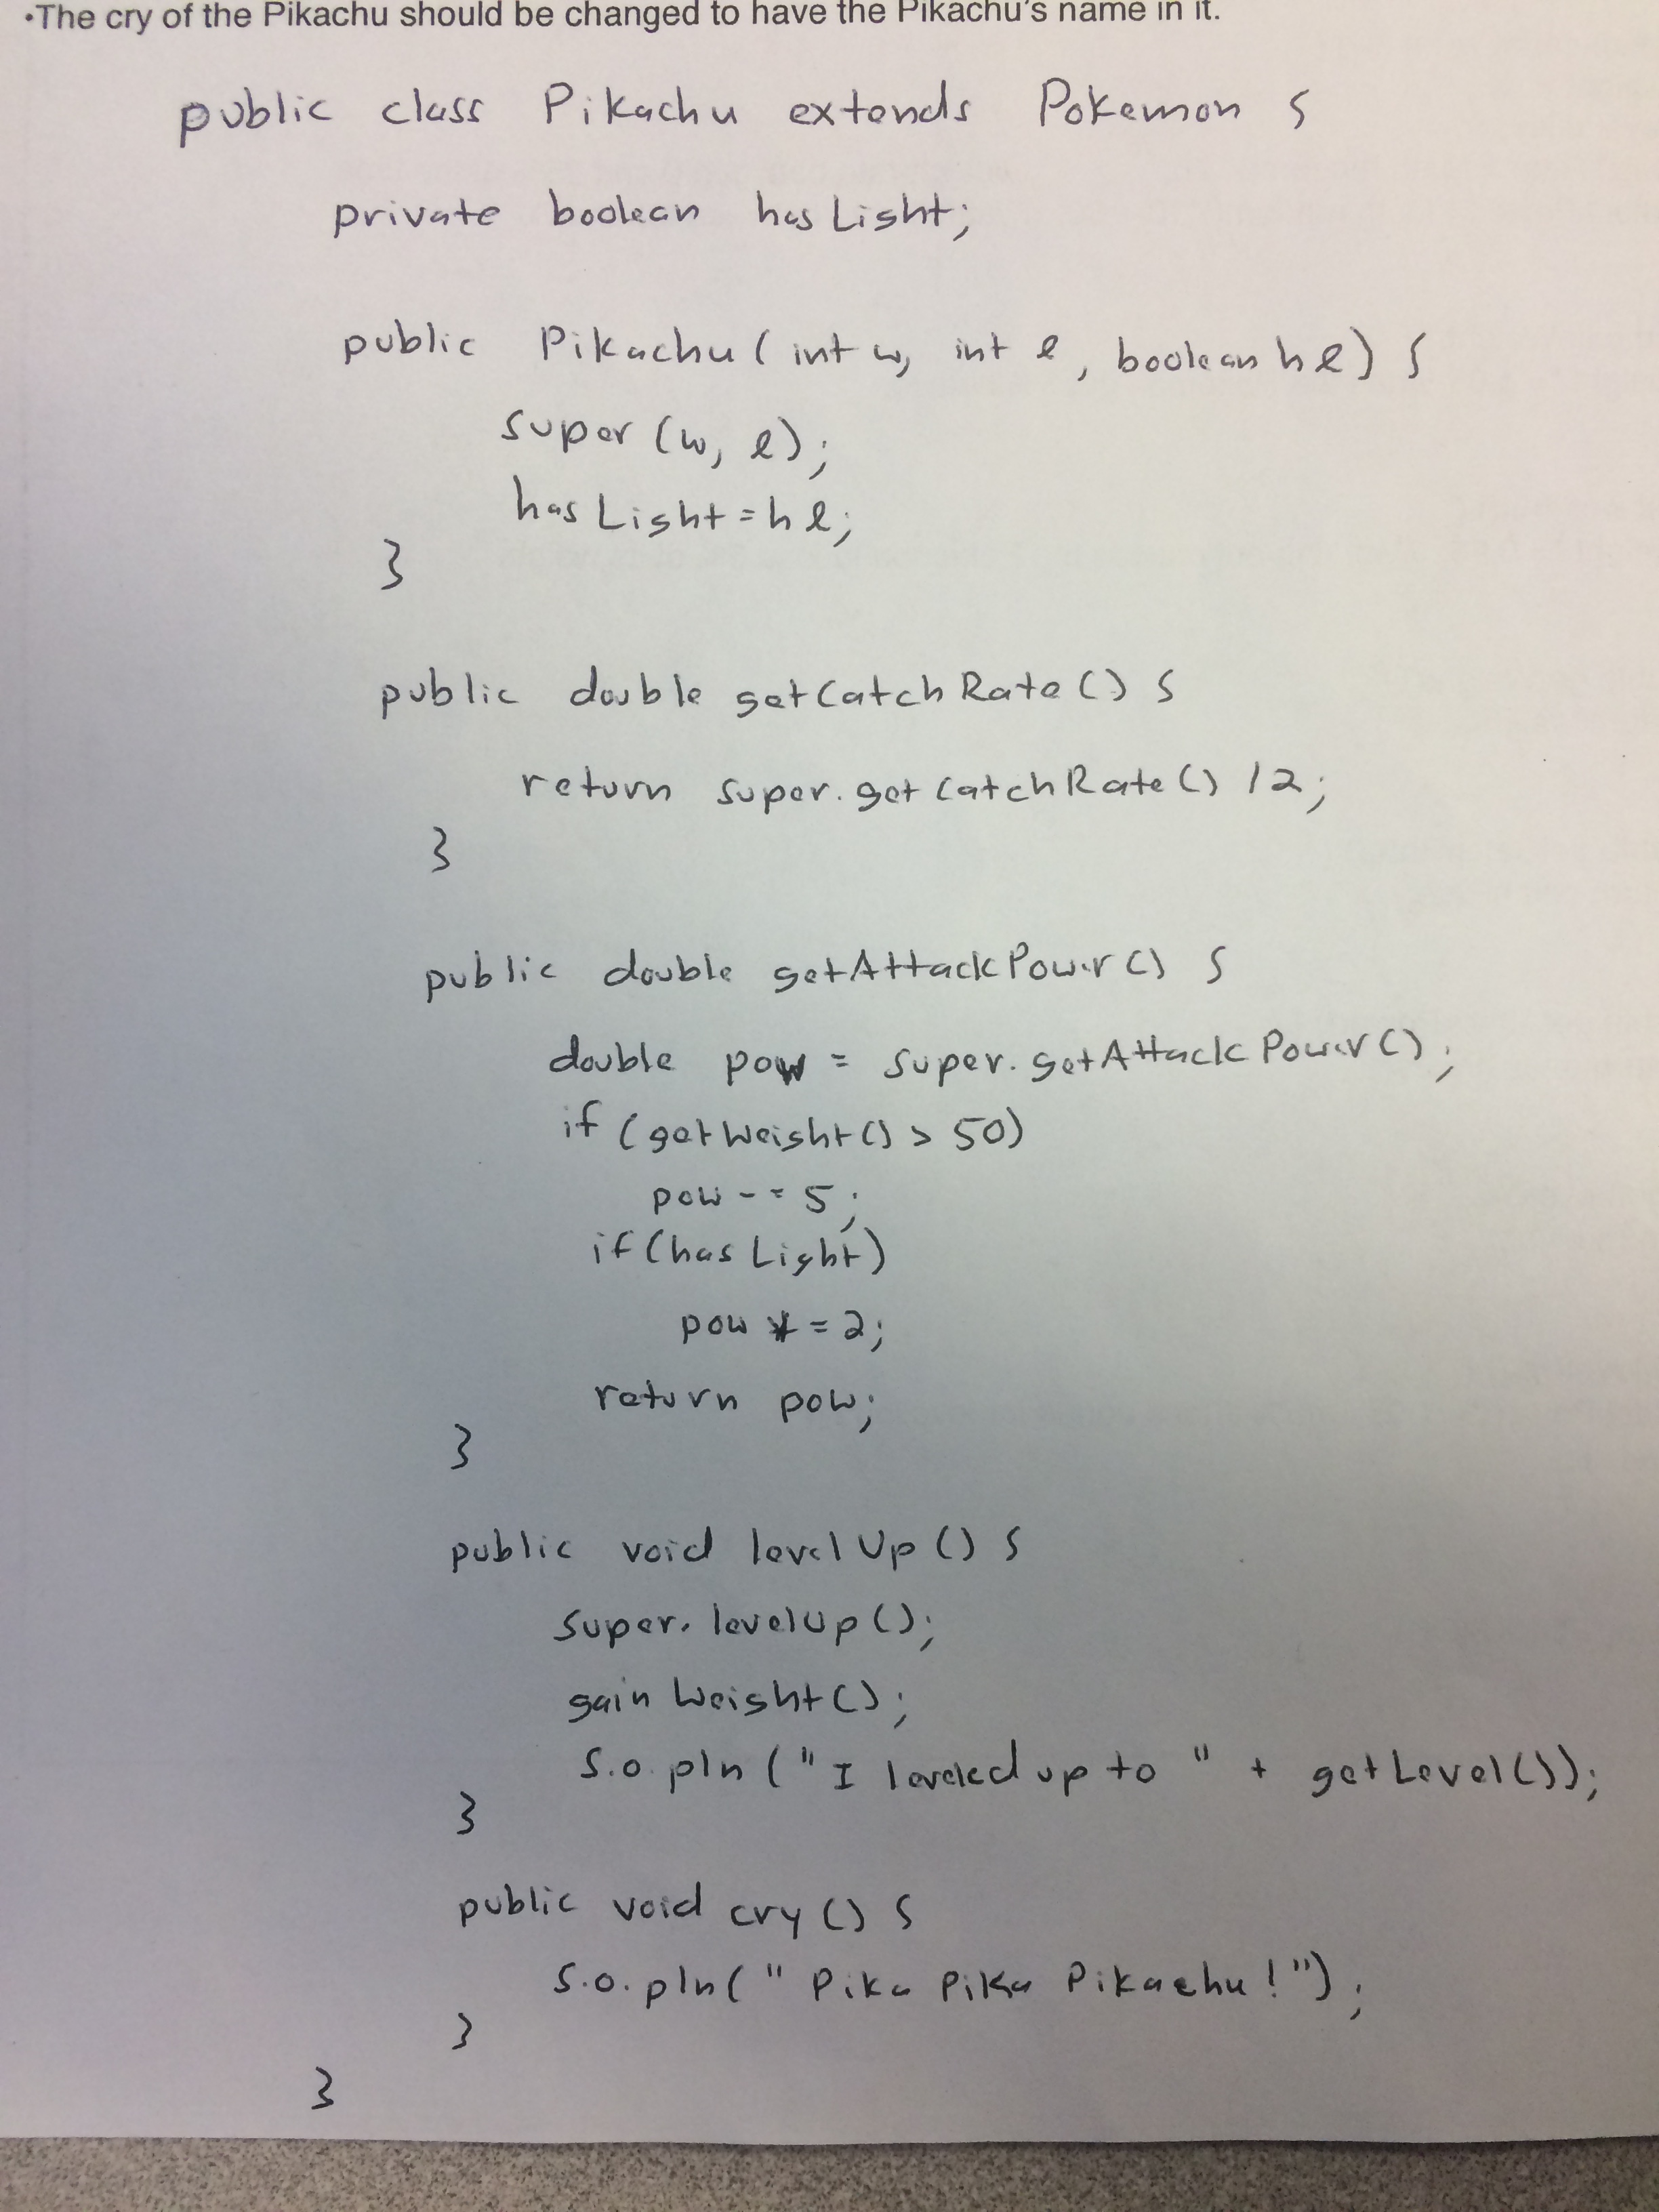 •The cry of the Pikachu should be changed to have the Pikachu's name in it.
public class Pikachu extends Pokemon {
private boolean hasLight;
public Pikachu(int w, int l, boolean hl) {
super(w, l);
hasLight = hl;
}
public double getCatchRate() {
return super.getCatchRate() /2;
}
public double getAttackPower() {
double pow = super.getAttackPower();
if (getWeight() > 50)
pow -= 5;
if(hasLight)
pow *= 2;
return pow;
}
public void levelUp() {
super.levelUp();
gainWeight();
S.o.pln("I leveled up to " + getLevel());
}
public void cry() {
S.o.pln("Pika Pika Pikachu!");
}
}